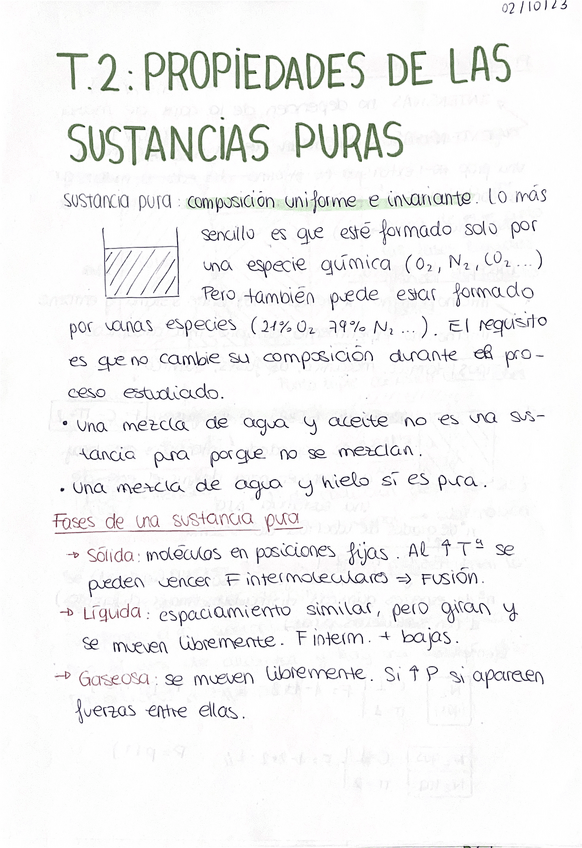 02/10/23
T.2: PROPIEDADES DE LAS
SUSTANCIAS PURAS
sustancia pura: composición uniforme e invariante. Lo más
sencillo es que esté formado solo por
una especie química (O₂, N₂, CO₂...)
Pero también puede estar formado
por varias especies (21% O₂ 79% N₂ ...). El requisito
es que no cambie su composición durante el pro-
ceso estudiado.
• una mezcla de agua y aceite no es una sus-
tancia pura porque no se mezclan.
• una mezcla de agua y hielo sí es pura.
Fases de una sustancia pura
→ Sólida: moléculas en posiciones fijas. Al ↑ Tª se
pueden vencer F intermoleculares ⇒ Fusión.
→ Líquida: espaciamiento similar, pero giran y
se mueven libremente. F interm. + bajas.
→ Gaseosa: se mueven libremente. Si ↑ P si aparecen
fuerzas entre ellas.